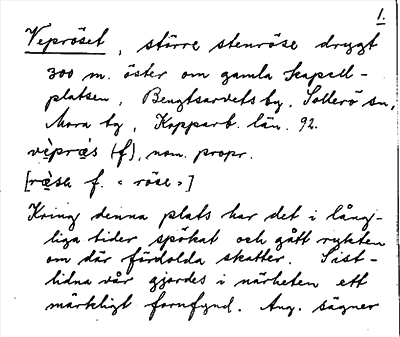 1.
Vepröset, större stenröse drygt
300 m. öster om gamla kapell-
platsen, Bengtsarvets by, Sollerö sn,
Mora tg, Kopparb. län. 92.
vèpræ̀s (f), nom. propr.
[ræ̀sa f. "röse"]
Kring denna plats har det i lång-
liga tider spökat och gått rykten
om där fördolda skatter. Sist-
lidna vår gjordes i närheten ett
märkligt fornfynd. Ang. sägner